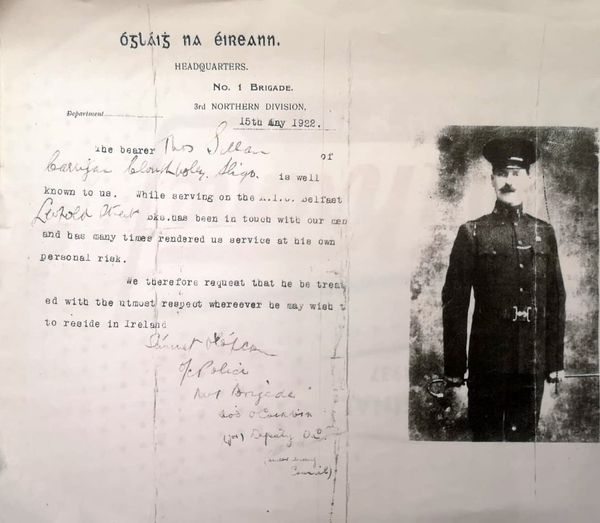 Ógláiġ na Éireann.
HEADQUARTERS.
No. 1 Brigade.
3rd NORTHERN DIVISION.
Department
15th May 1922.
The bearer Thos of
Sligo. is well
known to us. While serving on the R.I.C. Belfast
bks.has been in touch with our men
and has many times rendered us service at his own
personal risk.
We therefore request that he be treat
ed with the utmost respect whereever he may wish t
to reside in Ireland
O/C Police
No 1 Brigade
Deputy O.C.
Council)